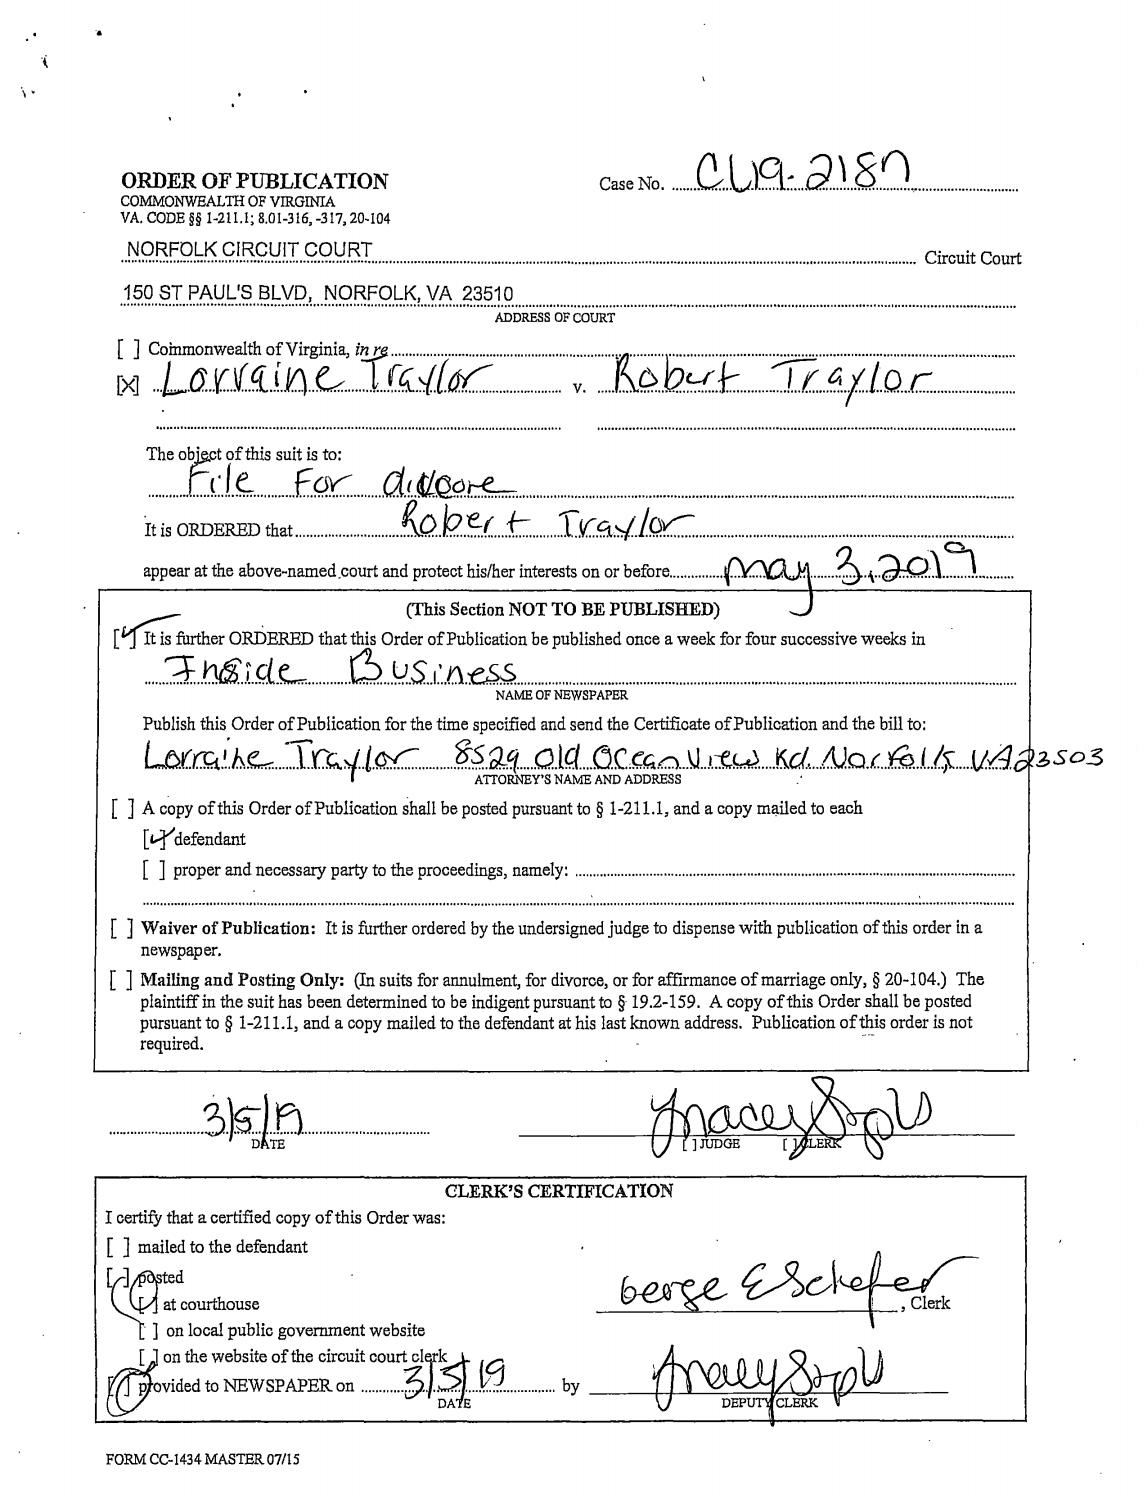 ORDER OF PUBLICATION
Case No. CL19-2187
COMMONWEALTH OF VIRGINIA
VA. CODE §§ 1-211.1; 8.01-316, -317, 20-104
NORFOLK CIRCUIT COURT Circuit Court
150 ST PAUL'S BLVD, NORFOLK, VA 23510
ADDRESS OF COURT
[ ] Commonwealth of Virginia, in re
[X] Lorraine Traylor v. Robert Traylor
The object of this suit is to:
File For
It is ORDERED that Robert Traylor
appear at the above-named court and protect his/her interests on or before may 3, 2019
(This Section NOT TO BE PUBLISHED)
[✓] It is further ORDERED that this Order of Publication be published once a week for four successive weeks in
Inside Business
NAME OF NEWSPAPER
Publish this Order of Publication for the time specified and send the Certificate of Publication and the bill to:
Lorraine Traylor 8529 Old Ocean View Rd. Norfolk VA 23503
ATTORNEY'S NAME AND ADDRESS
[ ] A copy of this Order of Publication shall be posted pursuant to § 1-211.1, and a copy mailed to each
[✓] defendant
[ ] proper and necessary party to the proceedings, namely:
[ ] Waiver of Publication: It is further ordered by the undersigned judge to dispense with publication of this order in a
newspaper.
[ ] Mailing and Posting Only: (In suits for annulment, for divorce, or for affirmance of marriage only, § 20-104.) The
plaintiff in the suit has been determined to be indigent pursuant to § 19.2-159. A copy of this Order shall be posted
pursuant to § 1-211.1, and a copy mailed to the defendant at his last known address. Publication of this order is not
required.
3/5/19
DATE
[ ] JUDGE [ ] CLERK
CLERK'S CERTIFICATION
I certify that a certified copy of this Order was:
[ ] mailed to the defendant
[✓] posted
[✓] at courthouse
George E Schaefer, Clerk
[ ] on local public government website
[ ] on the website of the circuit court clerk
[✓] provided to NEWSPAPER on 3/5/19 by
DATE
DEPUTY CLERK
FORM CC-1434 MASTER 07/15